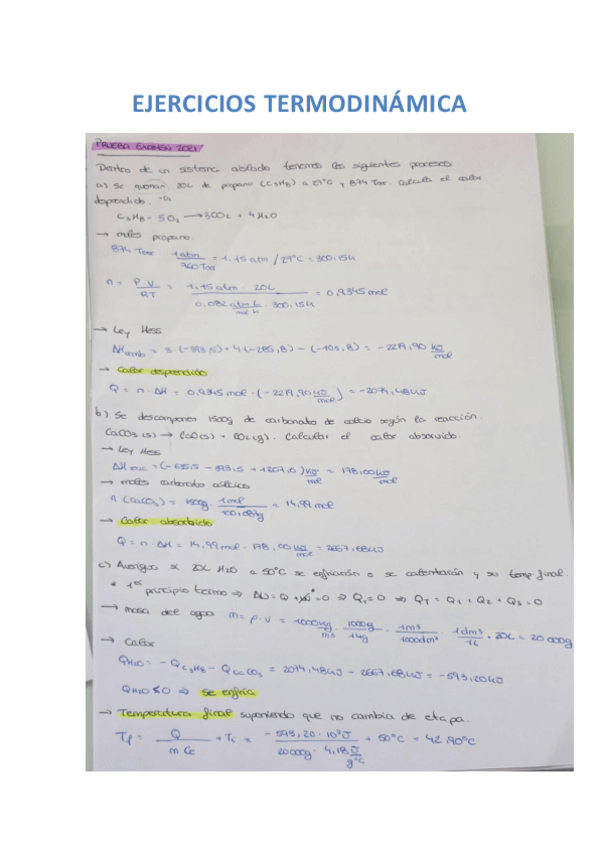 EJERCICIOS TERMODINÁMICA
PRUEBA EXAMEN 2021
Dentro de un sistema aislado tenemos los siguientes procesos
a) Se queman 20L de propano (C3H8) a 27°C y 874 Torr. Calcula el calor
desprendido.
C3H8 + 5O2 → 3CO2 + 4H2O
→ moles propano.
874 Torr · 1atm / 760 Torr = 1,15 atm / 27°C = 300,15K
n = P·V / R·T = 1,15 atm · 20L / 0,082 atm·L / mol·K · 300,15K = 0,9345 mol
→ Ley Hess
ΔH = 3·(-393,5) + 4(-285,8) - (-103,8) = -2219,90 KJ/mol
→ Calor desprendido
Q = n · ΔH = 0,9345 mol · (-2219,90 KJ/mol) = -2074,48KJ
b) Se descomponen 1500g de carbonato de calcio según la reacción.
CaCO3 (s) → CaO(s) + CO2 (g). Calcular el calor absorvido.
→ Ley Hess
ΔH = (-635,5 - 393,5 + 1207,0) KJ/mol = 178,00 KJ/mol
→ moles carbonato cálcico
n (CaCO3) = 1500g · 1mol / 100,08 g = 14,99 mol
→ Calor absorbido
Q = n · ΔH = 14,99 mol · 178,00 KJ/mol = 2667,68KJ
c) Averigua si 20L H2O a 50°C se enfriarán o se calentarán y su temp. final.
* 1er principio termo ⇒ ΔU = Q + W = 0 ⇒ QT = 0 ⇒ QT = Q1 + Q2 + Q3 = 0
→ masa del agua m = ρ · V = 1000 Kg / m3 · 1000g / 1Kg · 1m3 / 1000dm3 · 1dm3 / 1L · 20L = 20000g
→ Calor
QH2O = - QC3H8 - QCaCO3 = 2074,48KJ - 2667,68KJ = -593,20KJ
QH2O < 0 ⇒ se enfría
→ Temperatura final suponiendo que no cambia de etapa.
Tf = Q / m Ce + Ti = -593,20 · 10³J / 20000g · 4,18 J / g°C + 50°C = 42,90°C